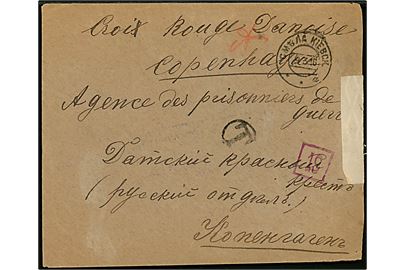 Croix Rouge Danoise
Copenhag
СМѢЛА КІЕВСК.
Agence des prisonniers de
guerr
T
Датскій красный
крестъ
(русскій отдѣлъ.)
Копенгагенъ